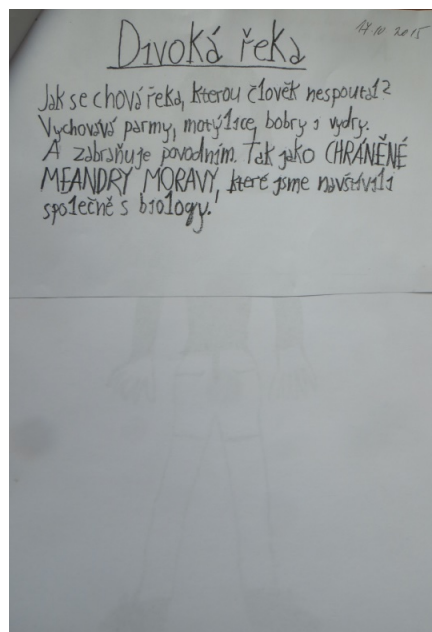 Divoká řeka
14.10 2015
Jak se chová řeka, kterou člověk nespoutal?
Vychovává parmy, motýlice, bobry i vydry.
A zabraňuje povodním. Tak jako CHRÁNĚNÉ
MEANDRY MORAVY, které jsme navštívili
společně s biology!